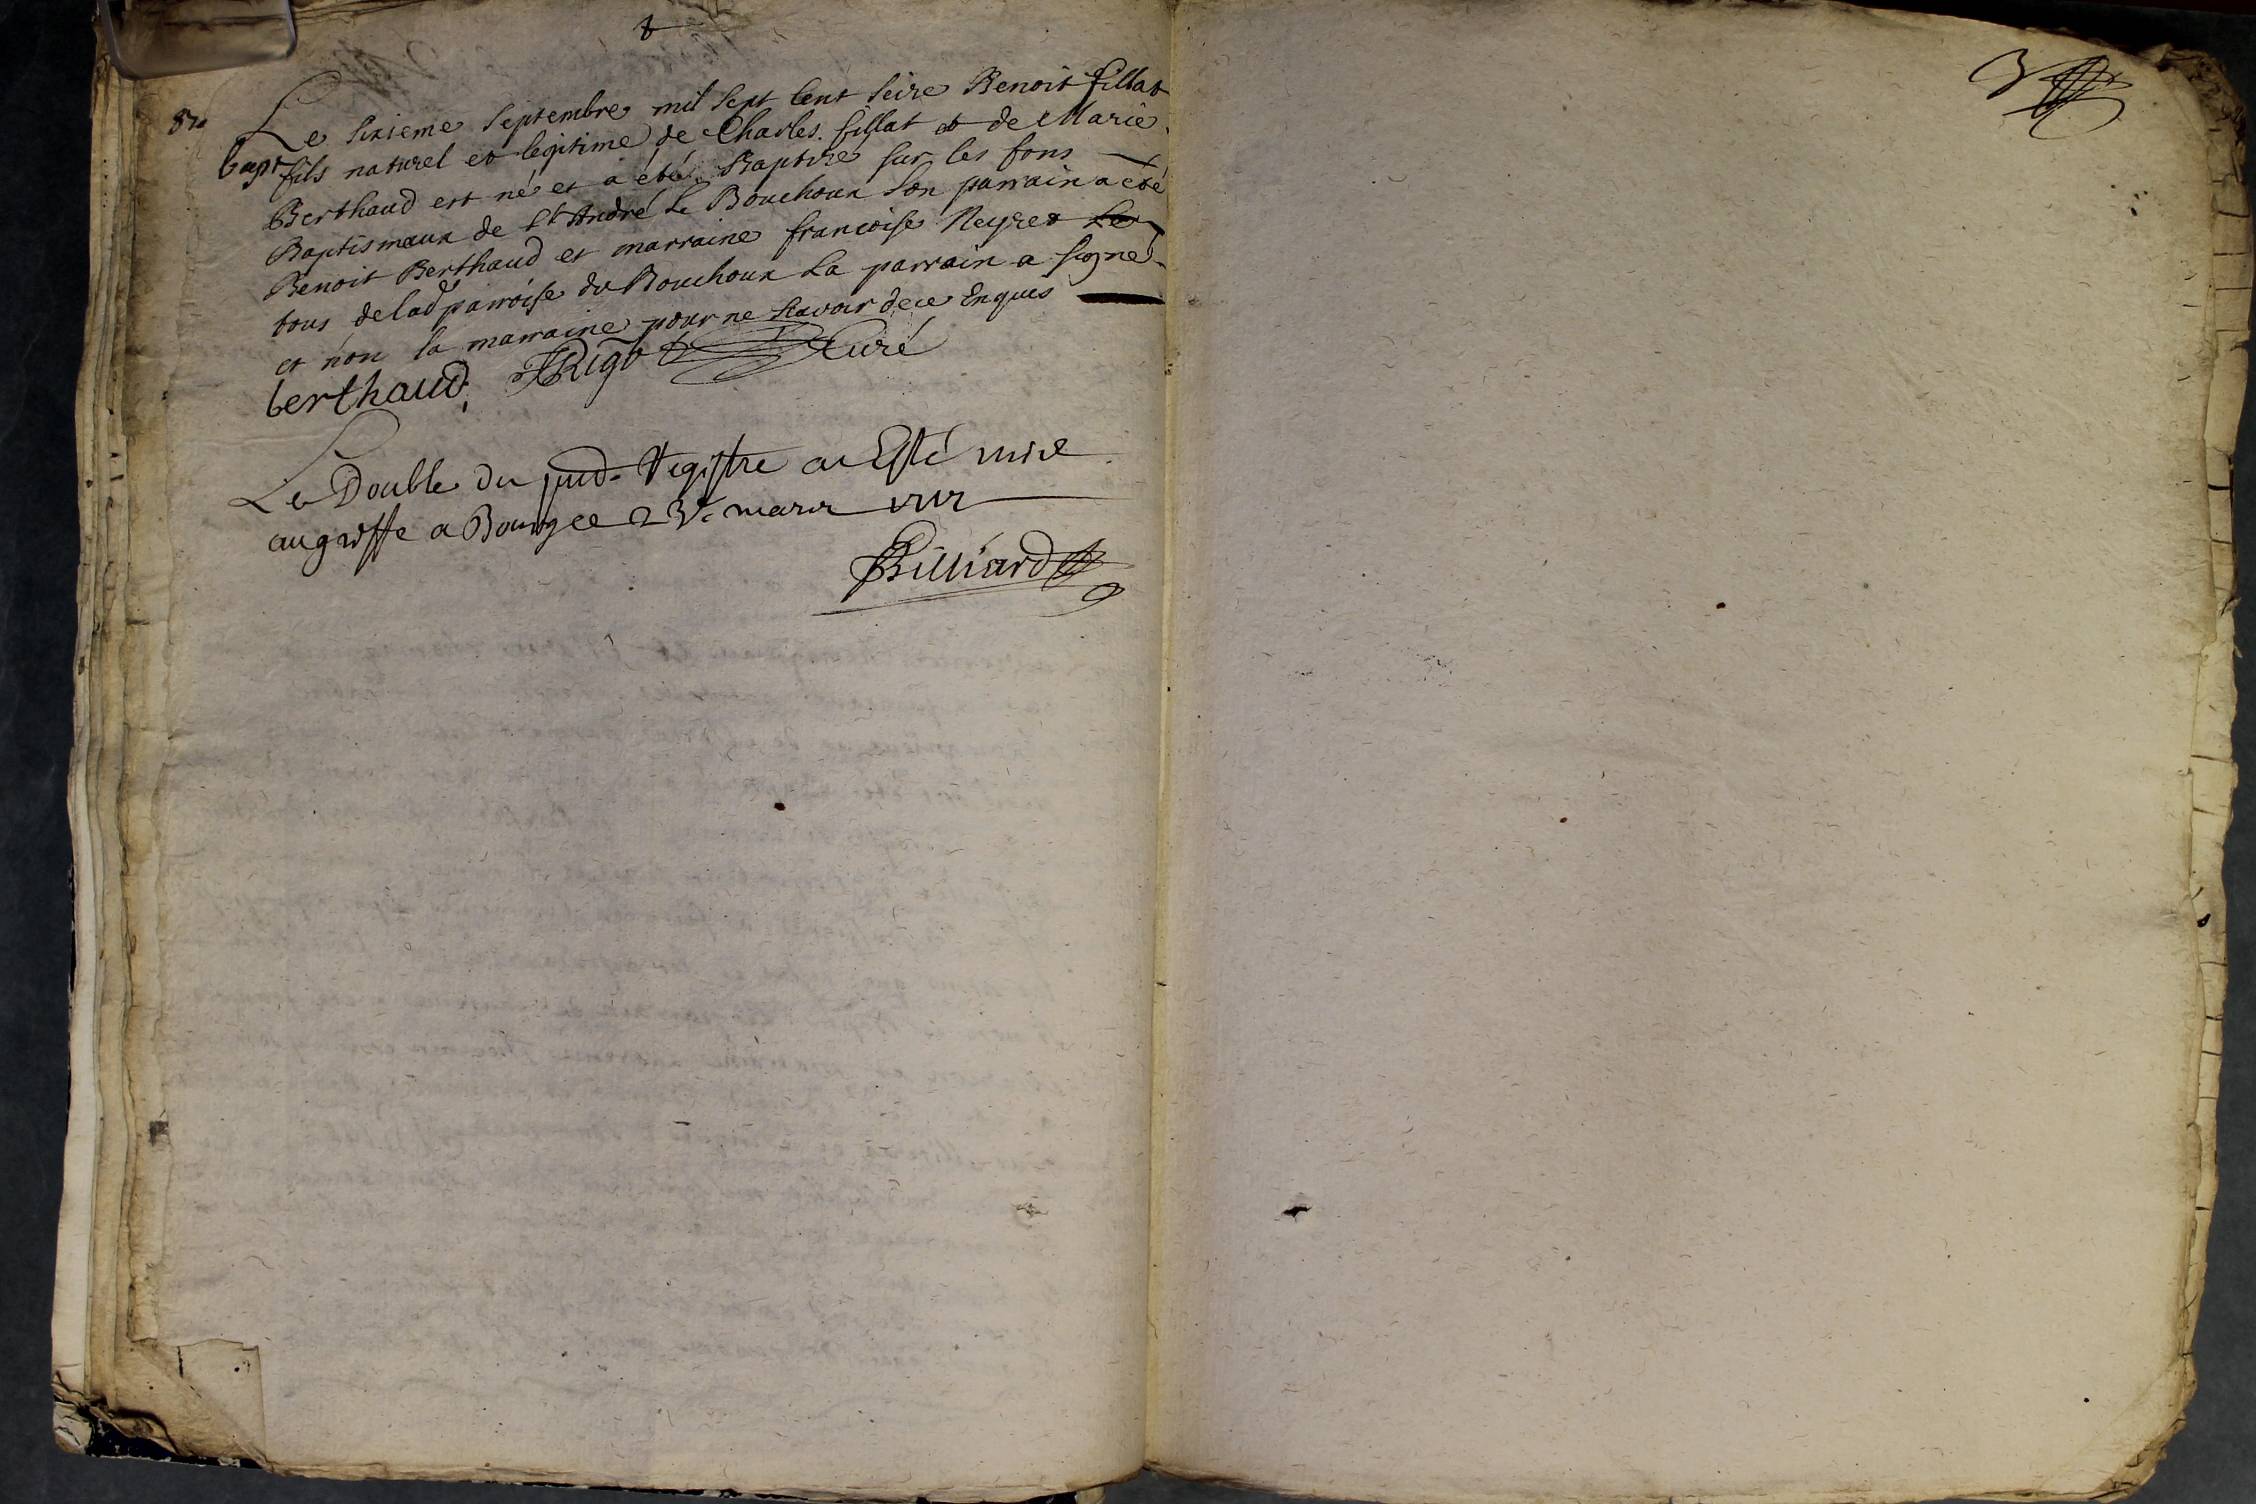 8.
bapt
Le Sixieme Septembre mil Sept Cent Seize Benoit fillat
fils naturel et legitime de Charles fillat et de Marie
Berthaud est né et a été Baptizé sur les fons
Baptismaux de St André Le Bouchoux son parrain a eté
Benoit Berthaud et marraine francoise Neyret
tous de lad parroisse du Bouchoux La parrain a signé
et non la marraine pour ne scavoir de ce Enquis
berthaud. Rigot Curé
Le Double du Registre a Esté mise
au greffe a Bourg ce 23e mars 1717
Billiard
3